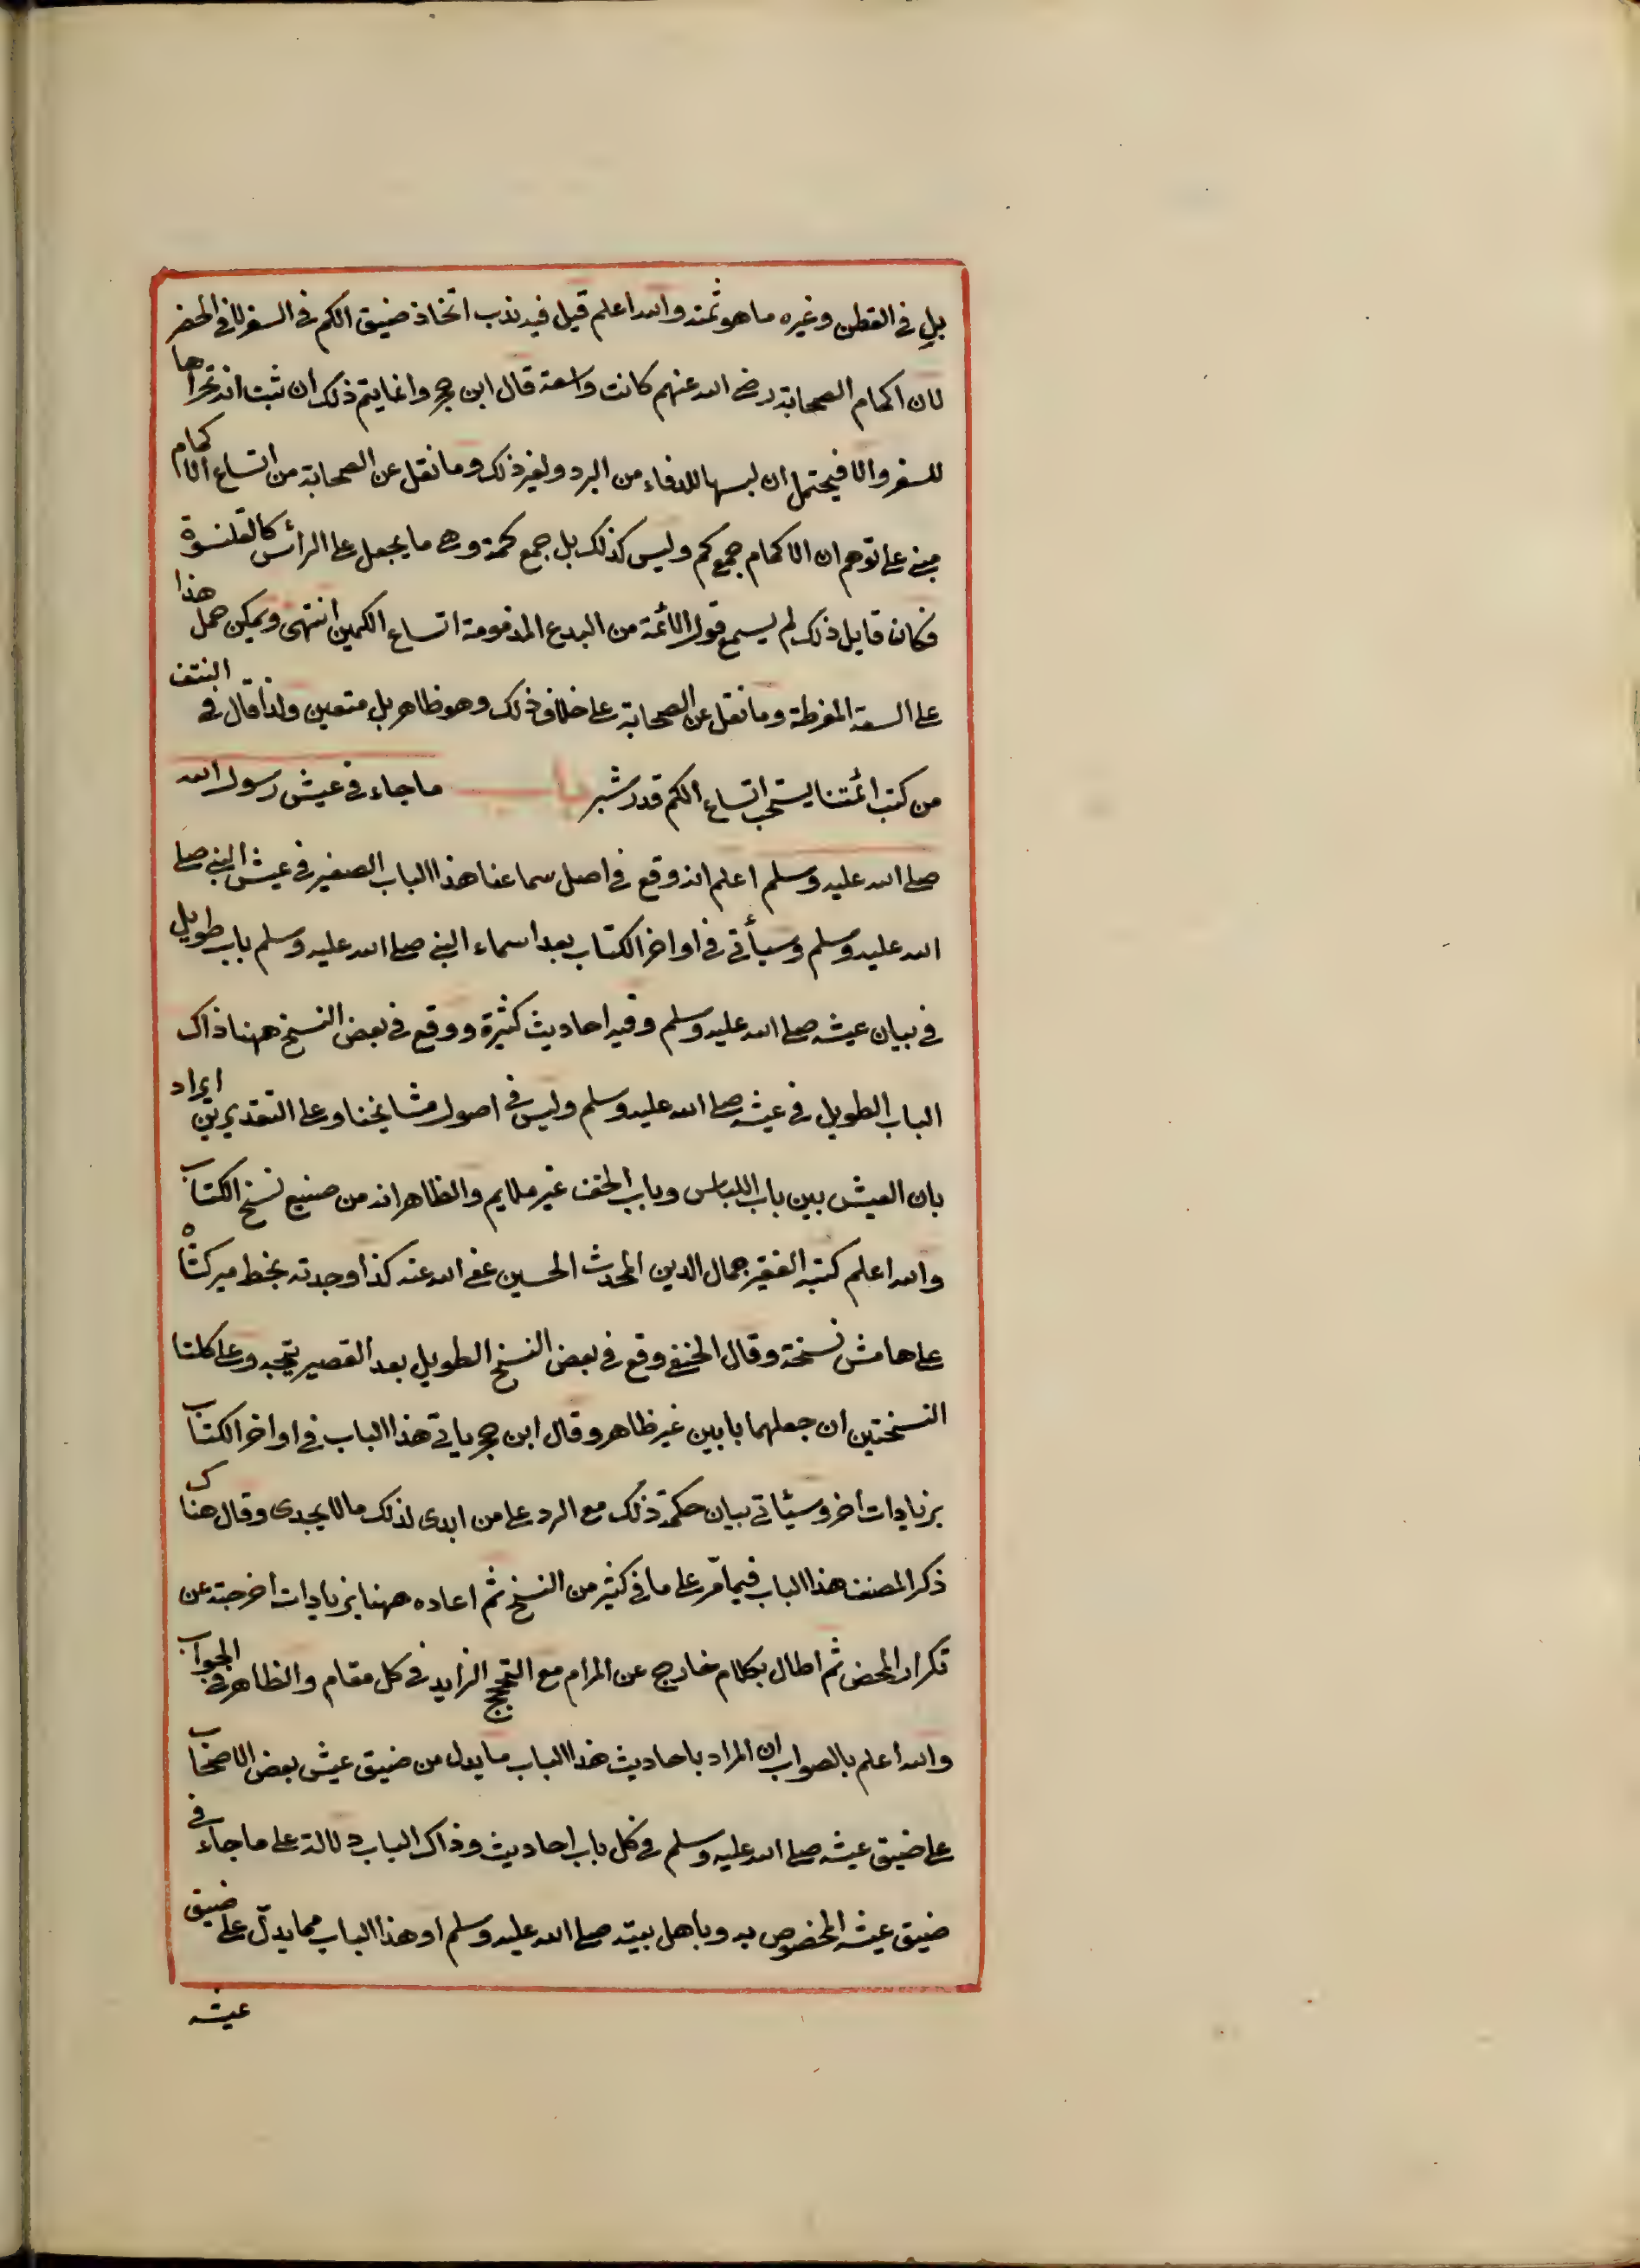 بل في القطن وغيره ما هو ثمنه والله اعلم قيل فيه ندب اتخاذ ضيق الكم في السفر لا في الحضر
لان اكمام الصحابة رضي الله عنهم كانت واسعة قال ابن حجر وانما يتم ذلك ان ثبت انه تحراها
للسفر والا فيحتمل ان لبسها للدفاء من البرد ولغير ذلك وما نقل عن الصحابة من اتساع الاكمام
مبني على توهم ان الاكمام جمع كم وليس كذلك بل جمع كمة وهي ما يجعل على الرأس كالقلنسوة
فكان قايل ذلك لم يسمع قول الائمة من البدع المذمومة اتساع الكمين انتهى ويمكن حمل هذا
على السعة المفرطة وما نقل عن الصحابة على خلاف ذلك وهو ظاهر بل متعين ولذا قال في النتف
من كتب ائمتنا يستحب اتساع الكم قدر شبر باب ما جاء في عيش رسول الله
صلى الله عليه وسلم اعلم انه وقع في اصل سماعنا هذا الباب الصغير في عيش النبي صلى
الله عليه وسلم وسيأتي في اواخر الكتاب بعد اسماء النبي صلى الله عليه وسلم باب طويل
في بيان عيشه صلى الله عليه وسلم وفيه احاديث كثيرة ووقع في بعض النسخ ههنا ذاك
الباب الطويل في عيشه صلى الله عليه وسلم وليس في اصول مشايخنا وعلى التقديرين ايراد
بان العيش بين باب اللباس وباب الخف غير ملايم والظاهر انه من صنيع نسخ الكتاب
والله اعلم كتبه الفقير جمال الدين المحدث الحسين عفى الله عنه كذا وجدته بخط ميركشاه
على هامش نسخة وقال الحنفي وقع في بعض النسخ الطويل بعد القصير يتجه وعلى كلتا
النسختين ان جعلهما بابين غير ظاهر وقال ابن حجر ياتي هذا الباب في اواخر الكتاب
بزيادات أخر وسيئاتي بيان حكمة ذلك مع الرد على من ابدى لذلك ما لا يجدى وقال هناك
ذكر المصنف هذا الباب فيما مر على ما في كثير من النسخ ثم اعاده ههنا بزيادات اخرجته عن
تكرار المحض ثم اطال بكلام خارج عن المرام مع التبجح الزايد في كل مقام والظاهر في الجواب
والله اعلم بالصواب ان المراد باحاديث هذا الباب ما يدل من ضيق عيش بعض الاصحاب
على ضيق عيشه صلى الله عليه وسلم في كل باب احاديث وذاك الباب دلالة على ما جاء في
ضيق عيشه المخصوص به وباهل بيته صلى الله عليه وسلم او هذا الباب مما يدل على ضيق
عيشه